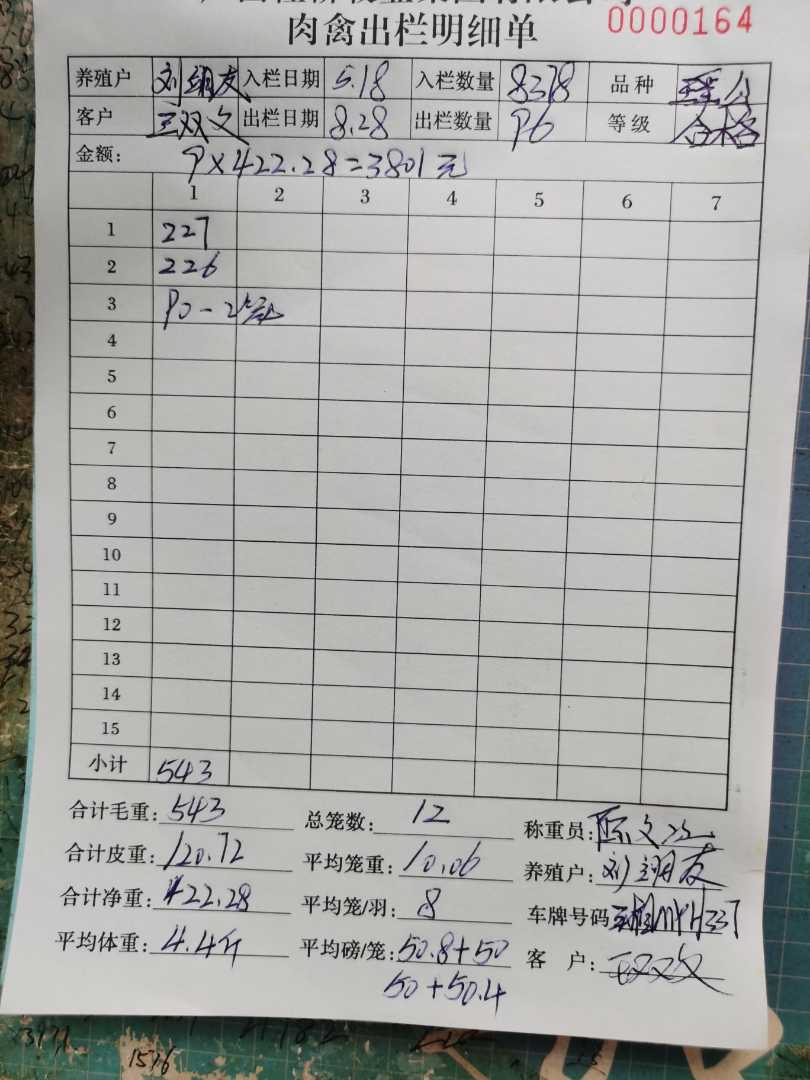 肉禽出栏明细单 0000164
养殖户 刘翊友 入栏日期 5.18 入栏数量 8378 品种
客户 王双文 出栏日期 8.28 出栏数量 96 等级 合格
金额: 9×422.28=3801元
1 2 3 4 5 6 7
1 227
2 226
3 90-2笼
4
5
6
7
8
9
10
11
12
13
14
15
小计 543
合计毛重: 543 总笼数: 12 称重员:
合计皮重: 120.72 平均笼重: 10.06 养殖户: 刘翊友
合计净重: 422.28 平均笼/羽: 8 车牌号码
平均体重: 4.4斤 平均磅/笼: 50.8+50 客户: 王双文
50+50.4
1516